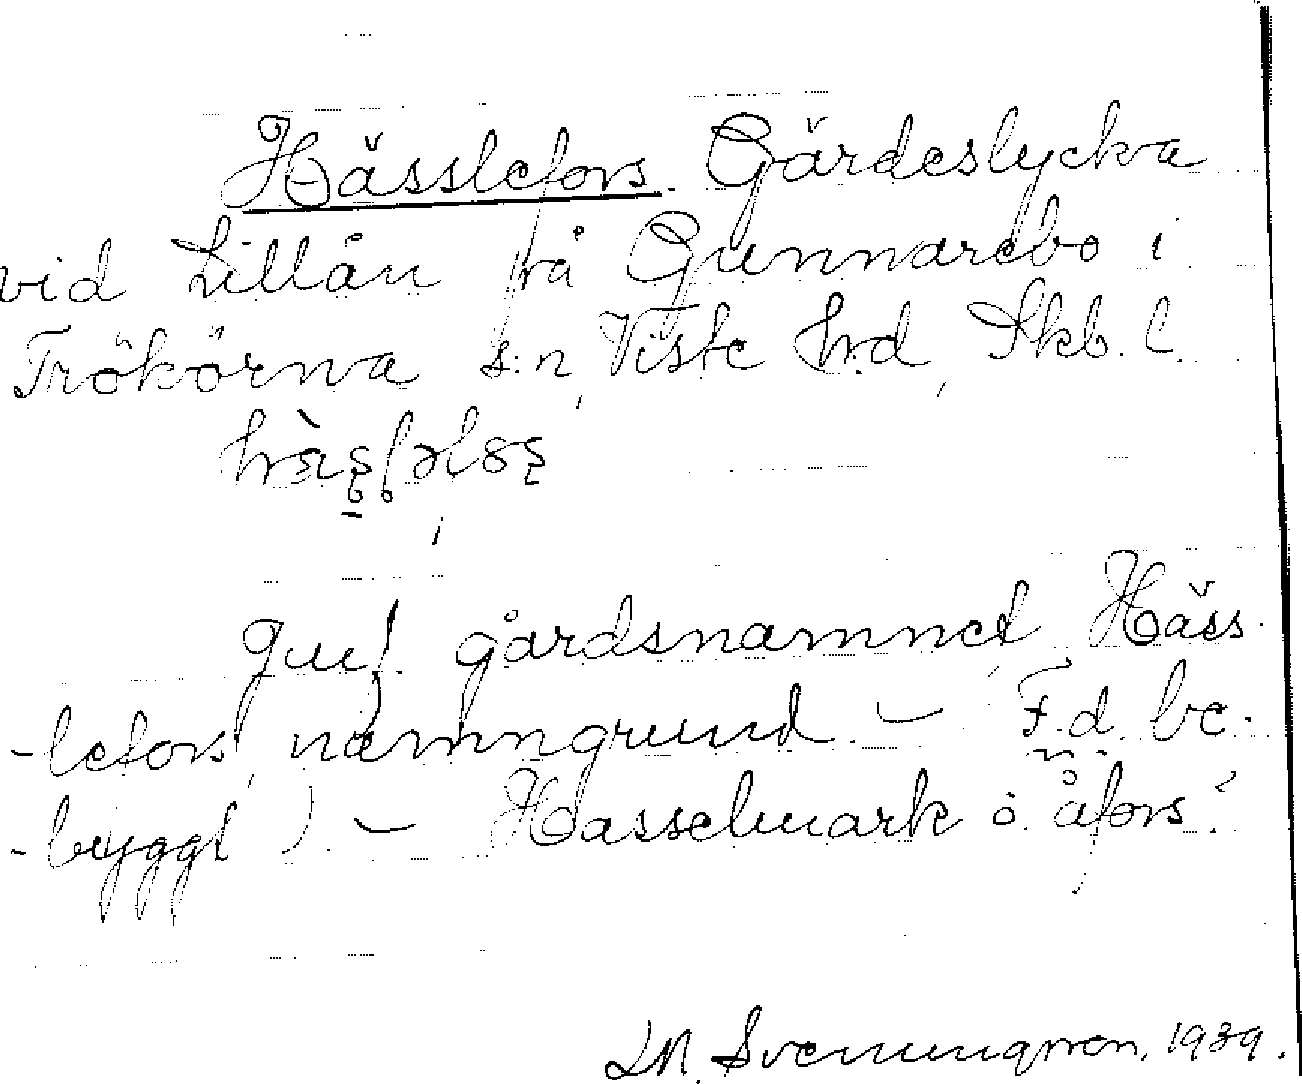 Hässlefors. Gärdeslycka
vid Lillån på Gunnarebo i
Trökörna s:n, Viste hrd, Skb. l.
gårdsnamnet Häss-
-lefors, namngrund – F.d. be-
-byggt) – Hasselmark o. åfors.
Svenungsson, 1939.